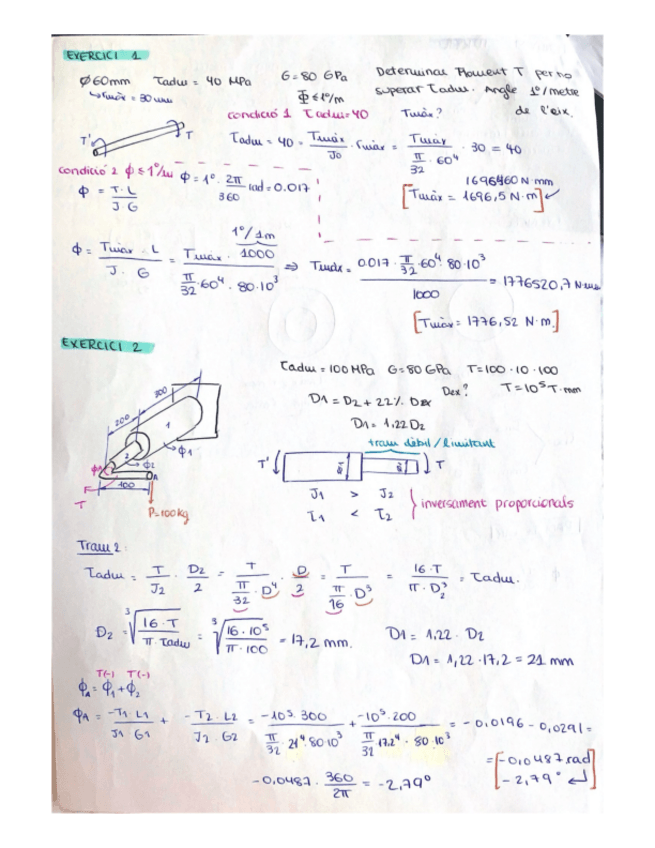 EXERCICI 1
Ø60mm τadm = 40 MPa G = 80 GPa Determinar Moment T per no
↳ rmàx = 30mm Φ ≤ 1°/m superar τadm. Angle 1°/metre
condició 1 τadm=40 Tmàx? de l'eix.
T' T τadm = 40 = Tmàx/J0 · rmàx = Tmàx/(π/32 · 60⁴) · 30 = 40
condició 2 ϕ ≤ 1°/m ϕ = 1° · 2π/360 rad = 0.017
[Tmàx = 1696,5 N·m] ↙
ϕ = T·L/J G
1°/1m
ϕ = Tmàx · L/J · G = Tmàx · 1000/(π/32 · 60⁴ · 80·10³) ⇒ Tmàx = 0.017 · π/32 · 60⁴ · 80·10³/1000 = 1776520,7 N·mm
[Tmàx = 1776,52 N·m.]
EXERCICI 2
τadm = 100 MPa G = 80 GPa T = 100 · 10 · 100
Dex? T = 10⁵ T·mm
D1 = D2 + 22% Dex
D1 = 1,22 D2
300
200
1
2
ϕ2
ϕ1
A
100
F
T
P=100kg
tram dèbil / limitant
T' T
J1 > J2
τ1 < τ2
inversament proporcionals
Tram 2:
τadm = T/J2 · D2/2 = T/(π/32 · D⁴) · D/2 = T/(π/16 · D³) = 16·T/(π · D2³) = τadm.
D2 = ³√(16·T/π·τadm) = ³√(16·10⁵/π·100) = 17,2 mm. D1 = 1,22 · D2
D1 = 1,22 · 17,2 = 21 mm
T(-) T(-)
ϕA = ϕ1 + ϕ2
ϕA = -T1·L1/J1·G1 + -T2·L2/J2·G2 = -10⁵·300/(π/32 · 21⁴·80·10³) + -10⁵·200/(π/32 17.2⁴ · 80·10³) = -0,0196 - 0,0291 =
= [-0,0487 rad
-2,79° ↲]
-0,0487 · 360/2π = -2,79°